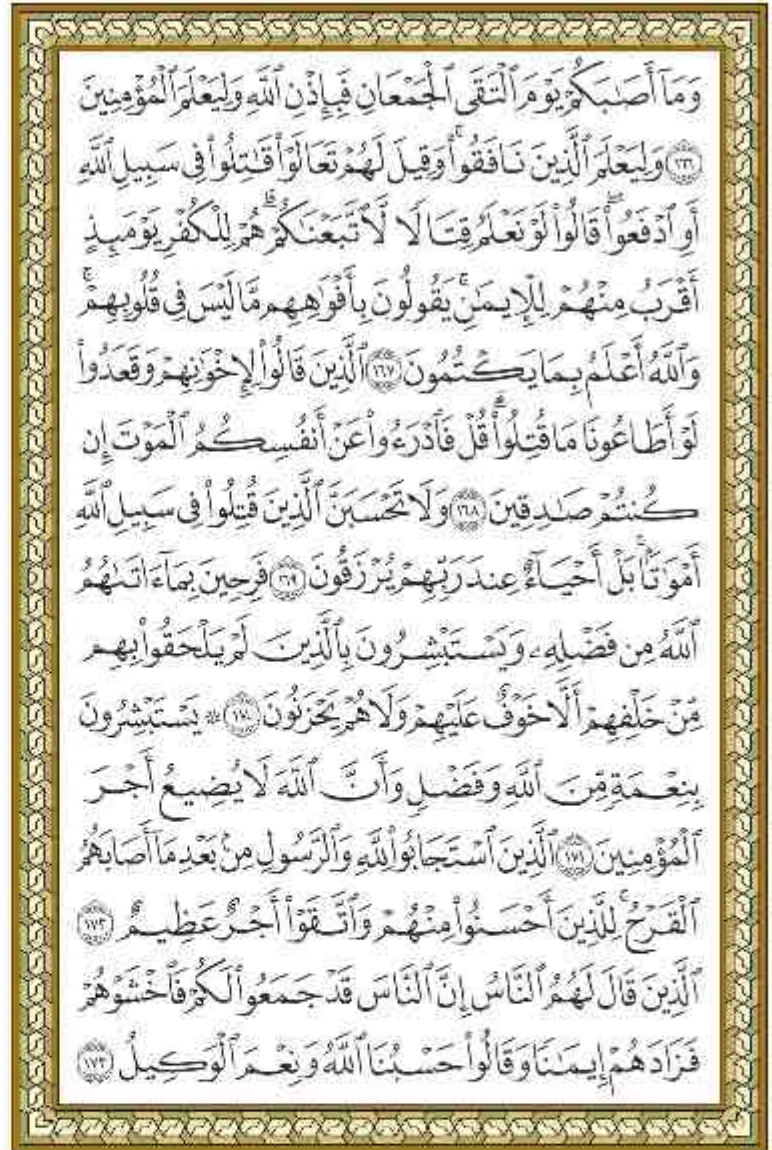 وَمَآ أَصَـٰبَكُمْ يَوْمَ ٱلْتَقَى ٱلْجَمْعَانِ فَبِإِذْنِ ٱللَّهِ وَلِيَعْلَمَ ٱلْمُؤْمِنِينَ
﴿١٦٦﴾ وَلِيَعْلَمَ ٱلَّذِينَ نَافَقُوا۟ۚ وَقِيلَ لَهُمْ تَعَالَوْا۟ قَـٰتِلُوا۟ فِى سَبِيلِ ٱللَّهِ
أَوِ ٱدْفَعُوا۟ۖ قَالُوا۟ لَوْ نَعْلَمُ قِتَالًا لَّٱتَّبَعْنَـٰكُمْۗ هُمْ لِلْكُفْرِ يَوْمَئِذٍ
أَقْرَبُ مِنْهُمْ لِلْإِيمَـٰنِۚ يَقُولُونَ بِأَفْوَٰهِهِم مَّا لَيْسَ فِى قُلُوبِهِمْۗ
وَٱللَّهُ أَعْلَمُ بِمَا يَكْتُمُونَ ﴿١٦٧﴾ ٱلَّذِينَ قَالُوا۟ لِإِخْوَٰنِهِمْ وَقَعَدُوا۟
لَوْ أَطَاعُونَا مَا قُتِلُوا۟ۗ قُلْ فَٱدْرَءُوا۟ عَنْ أَنفُسِكُمُ ٱلْمَوْتَ إِن
كُنتُمْ صَـٰدِقِينَ ﴿١٦٨﴾ وَلَا تَحْسَبَنَّ ٱلَّذِينَ قُتِلُوا۟ فِى سَبِيلِ ٱللَّهِ
أَمْوَٰتًۢاۚ بَلْ أَحْيَآءٌ عِندَ رَبِّهِمْ يُرْزَقُونَ ﴿١٦٩﴾ فَرِحِينَ بِمَآ ءَاتَىٰهُمُ
ٱللَّهُ مِن فَضْلِهِۦ وَيَسْتَبْشِرُونَ بِٱلَّذِينَ لَمْ يَلْحَقُوا۟ بِهِم
مِّنْ خَلْفِهِمْ أَلَّا خَوْفٌ عَلَيْهِمْ وَلَا هُمْ يَحْزَنُونَ ﴿١٧٠﴾ ۞ يَسْتَبْشِرُونَ
بِنِعْمَةٍ مِّنَ ٱللَّهِ وَفَضْلٍ وَأَنَّ ٱللَّهَ لَا يُضِيعُ أَجْرَ
ٱلْمُؤْمِنِينَ ﴿١٧١﴾ ٱلَّذِينَ ٱسْتَجَابُوا۟ لِلَّهِ وَٱلرَّسُولِ مِنۢ بَعْدِ مَآ أَصَابَهُمُ
ٱلْقَرْحُۚ لِلَّذِينَ أَحْسَنُوا۟ مِنْهُمْ وَٱتَّقَوْا۟ أَجْرٌ عَظِيمٌ ﴿١٧٢﴾
ٱلَّذِينَ قَالَ لَهُمُ ٱلنَّاسُ إِنَّ ٱلنَّاسَ قَدْ جَمَعُوا۟ لَكُمْ فَٱخْشَوْهُمْ
فَزَادَهُمْ إِيمَـٰنًا وَقَالُوا۟ حَسْبُنَا ٱللَّهُ وَنِعْمَ ٱلْوَكِيلُ ﴿١٧٣﴾